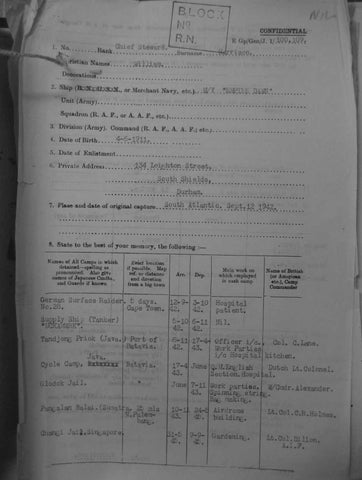 BLOCK
No
R.N.
CONFIDENTIAL
1. No. Rank Chief Steward. Surname
Christian Names William.
Decorations
2. Ship (R.N., U.S.N., or Merchant Navy, etc.) M/V "EMPIRE DAWN"
Unit (Army)
Squadron (R. A. F., or A. A. F., etc.)
3. Division (Army). Command (R. A. F., A. A. F., etc.)
4. Date of Birth 4-6-1911.
5. Date of Enlistment
6. Private Address 134 Leighton Street,
South Shields,
Durham.
7. Place and date of original capture South Atlantic. Sept.12 1942.
8. State to the best of your memory, the following :—
Names of All Camps in which
detained—spelling as
pronounced. Also give
names of Japanese Comdts.
and Guards if known
Brief location
if possible. Map
ref. or distance
and direction
from a big town
Arr.
Dep.
Main work on
which employed
in each camp
Name of British
(or American
etc.)
Camp
Commander
German Surface Raider. 5 days. 12-9 5-10 Hospital
No.28. Cape Town. 42. 42. patient.
Supply Ship (Tanker) 5-10 6-11 Nil.
42. 42.
Tandjong Priok (Java.) Port of 6-11 17-4 Officer i/c. Col. C. Lane.
Batavia. 42. 43. Work Parties
i/c Hospital kitchen.
Cycle Camp. Java. Batavia. 17-4 June Q.M.English Dutch Lt.Colonel.
43. Section.Hospital.
Glodok Jail. June 7-11 Work parties. W/Cmdr.Alexander.
43. Spinning string
Bag making.
Pangalan Balai. (Sumatra. 10-11
Airdrome Lt.Col.
building.
Changi Jail, Singapore. 9-9- Gardening. Lt.Col.Dillon.
45. A.I.F.